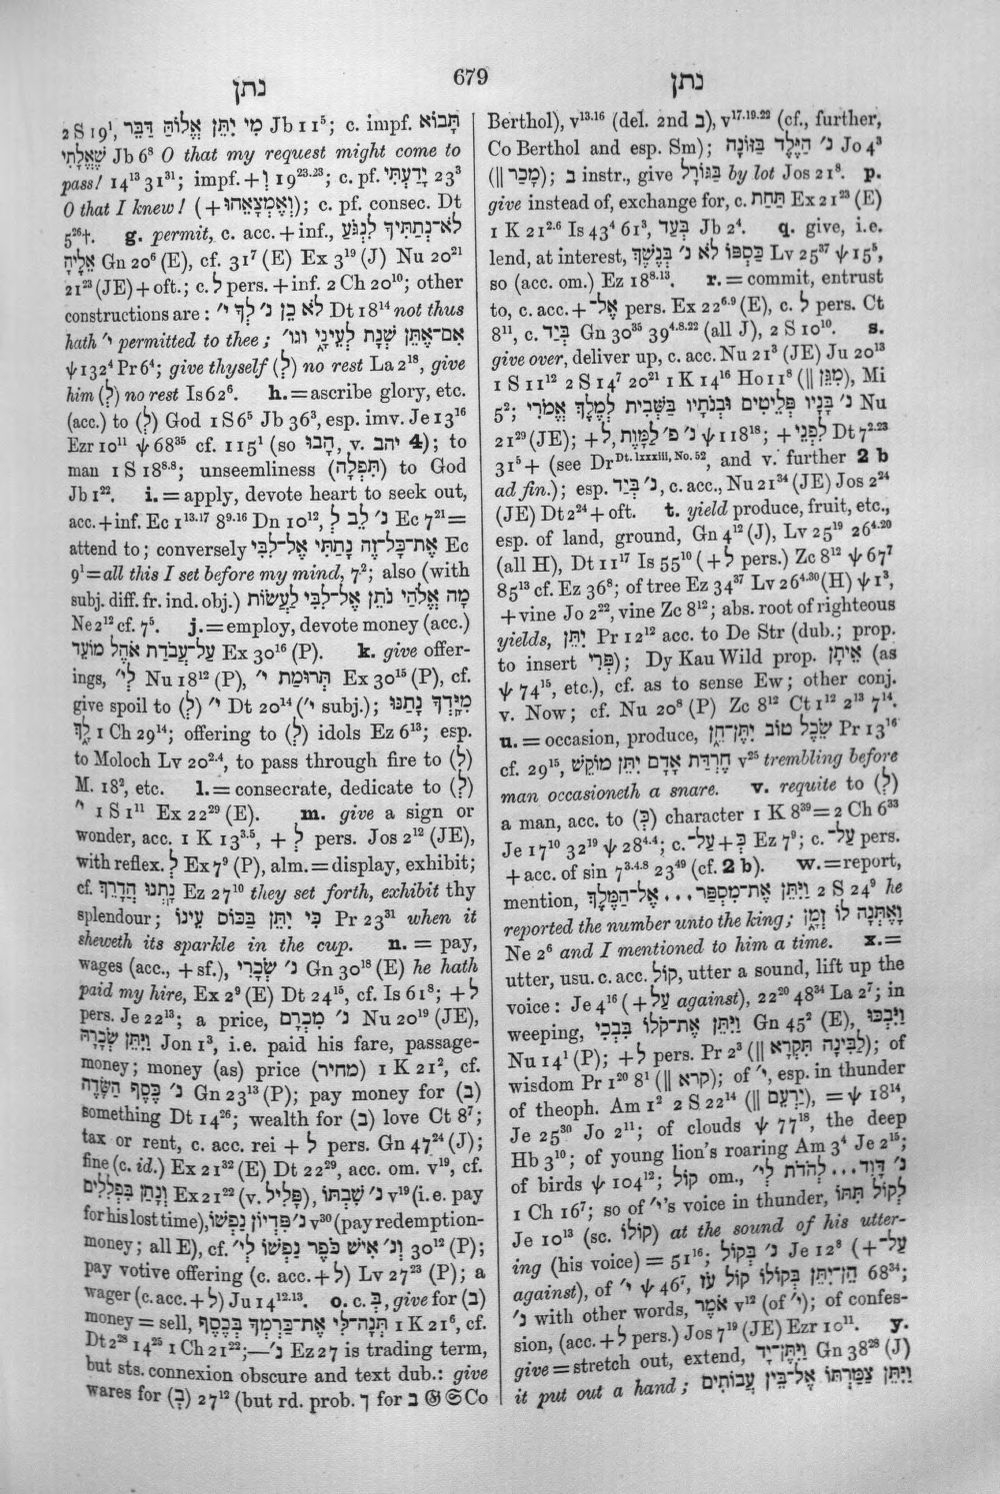 נתן
679
נתן
2 S 19¹, מִי יִתֵּן אֱלוֹהַּ דַּבֵּר Jb 11⁵; c. impf. תָּבוֹא
שֶׁאֱלָתִי Jb 6⁸ O that my request might come to
pass! 14¹³ 31³¹; impf. + וְ 19²³·²³; c. pf. יָדַעְתִּי 23³
O that I knew! (+ וְאֶמְצָאֵהוּ); c. pf. consec. Dt
5²⁶†. g. permit, c. acc. + inf., לֹא־נְתַתִּיךָ לִנְגֹּעַ
אֵלֶיהָ Gn 20⁶ (E), cf. 31⁷ (E) Ex 3¹⁹ (J) Nu 20²¹
21²³ (JE) + oft.; c. לְ pers. + inf. 2 Ch 20¹⁰; other
constructions are: לֹא כֵן נ׳ לְךָ י״ Dt 18¹⁴ not thus
hath י״ permitted to thee; אִם־אֶתֵּן שְׁנָת לְעֵינָי וגו׳
ψ 132⁴ Pr 6⁴; give thyself (לְ) no rest La 2¹⁸, give
him (לְ) no rest Is 62⁶. h. = ascribe glory, etc.
(acc.) to (לְ) God 1 S 6⁵ Jb 36³, esp. imv. Je 13¹⁶
Ezr 10¹¹ ψ 68³⁵ cf. 115¹ (so הָבוּ, v. יהב 4); to
man 1 S 18⁸·⁸; unseemliness (תִּפְלָה) to God
Jb 1²². i. = apply, devote heart to seek out,
acc. + inf. Ec 1¹³·¹⁷ 8⁹·¹⁶ Dn 10¹², נ׳ לֵב לְ Ec 7²¹ =
attend to; conversely אֶת־כָּל־זֶה נָתַתִּי אֶל־לִבִּי Ec
9¹ = all this I set before my mind, 7²; also (with
subj. diff. fr. ind. obj.) מָה אֱלֹהַי נֹתֵן אֶל־לִבִּי לַעֲשׂוֹת
Ne 2¹² cf. 7⁵. j. = employ, devote money (acc.)
עַל־עֲבֹדַת אֹהֶל מוֹעֵד Ex 30¹⁶ (P). k. give offer-
ings, לַי״ Nu 18¹² (P), תְּרוּמַת י״ Ex 30¹⁵ (P), cf.
give spoil to (לְ) י״ Dt 20¹⁴ (י״ subj.); מִיָּדְךָ נָתַנּוּ
לָךְ 1 Ch 29¹⁴; offering to (לְ) idols Ez 6¹³; esp.
to Moloch Lv 20²·⁴, to pass through fire to (לְ)
M. 18², etc. l. = consecrate, dedicate to (לְ)
י״ 1 S 1¹¹ Ex 22²⁹ (E). m. give a sign or
wonder, acc. 1 K 13³·⁵, + לְ pers. Jos 2¹² (JE),
with reflex. לְ Ex 7⁹ (P), alm. = display, exhibit;
cf. נָתְנוּ הֲדָרֵךְ Ez 27¹⁰ they set forth, exhibit thy
splendour; כִּי יִתֵּן בַּכּוֹס עֵינוֹ Pr 23³¹ when it
sheweth its sparkle in the cup. n. = pay,
wages (acc., + sf.), נ׳ שְׂכָרִי Gn 30¹⁸ (E) he hath
paid my hire, Ex 2⁹ (E) Dt 24¹⁵, cf. Is 61⁸; + לְ
pers. Je 22¹³; a price, נ׳ מִכְרָם Nu 20¹⁹ (JE),
וַיִּתֵּן שְׂכָרָהּ Jon 1³, i.e. paid his fare, passage-
money; money (as) price (מחיר) 1 K 21², cf.
נ׳ כֶּסֶף הַשָּׂדֶה Gn 23¹³ (P); pay money for (ב)
something Dt 14²⁶; wealth for (ב) love Ct 8⁷;
tax or rent, c. acc. rei + לְ pers. Gn 47²⁴ (J);
fine (c. id.) Ex 21³² (E) Dt 22²⁹, acc. om. v¹⁹, cf.
וְנָתַן בִּפְלִלִים Ex 21²² (v. פָּלִיל), נ׳ שִׁבְתּוֹ v¹⁹ (i.e. pay
for his lost time), נ׳ פִּדְיוֹן נַפְשׁוֹ v³⁰ (pay redemption-
money; all E), cf. וְנ׳ אִישׁ כֹּפֶר נַפְשׁוֹ לַי״ 30¹² (P);
pay votive offering (c. acc. + לְ) Lv 27²³ (P); a
wager (c. acc. + לְ) Ju 14¹²·¹³. o. c. בְּ, give for (ב)
money = sell, תְּנָה־לִּי אֶת־כַּרְמְךָ בְּכֶסֶף 1 K 21⁶, cf.
Dt 2²⁸ 14²⁵ 1 Ch 21²²; — נ׳ Ez 27 is trading term,
but sts. connexion obscure and text dub.: give
wares for (בְּ) 27¹² (but rd. prob. ך for ב 𝔊 𝔖 Co
Berthol), v¹³·¹⁶ (del. 2nd ב), v¹⁷·¹⁹·²² (cf., further,
Co Berthol and esp. Sm); נ׳ הַיֶּלֶד בַּזּוֹנָה Jo 4³
(‖ מָכַר); ב instr., give בַּגּוֹרָל by lot Jos 21⁸. p.
give instead of, exchange for, c. תַּחַת Ex 21²³ (E)
1 K 21²·⁶ Is 43⁴ 61³, בְּעַד Jb 2⁴. q. give, i.e.
lend, at interest, כַּסְפּוֹ לֹא נ׳ בְּנֶשֶׁךְ Lv 25³⁷ ψ 15⁵,
so (acc. om.) Ez 18⁸·¹³. r. = commit, entrust
to, c. acc. + אֶל־ pers. Ex 22⁶·⁹ (E), c. לְ pers. Ct
8¹¹, c. בְּיַד Gn 30³⁵ 39⁴·⁸·²² (all J), 2 S 10¹⁰. s.
give over, deliver up, c. acc. Nu 21³ (JE) Ju 20¹³
1 S 11¹² 2 S 14⁷ 20²¹ 1 K 14¹⁶ Ho 11⁸ (‖ מִגֵּן), Mi
5²; נ׳ בָּנָיו פְּלֵיטִים וּבְנֹתָיו בַּשְּׁבִית לְמֶלֶךְ אֱמֹרִי Nu
21²⁹ (JE); + לְ, נ׳ פ׳ לַמָּוֶת ψ 118¹⁸; + לִפְנֵי Dt 7²·²³
31⁵ + (see Dr Dt. lxxxiii, No. 52, and v. further 2 b
ad fin.); esp. נ׳ בְּיַד, c. acc., Nu 21³⁴ (JE) Jos 2²⁴
(JE) Dt 2²⁴ + oft. t. yield produce, fruit, etc.,
esp. of land, ground, Gn 4¹² (J), Lv 25¹⁹ 26⁴·²⁰
(all H), Dt 11¹⁷ Is 55¹⁰ (+ לְ pers.) Zc 8¹² ψ 67⁷
85¹³ cf. Ez 36⁸; of tree Ez 34²⁷ Lv 26⁴·²⁰ (H) ψ 1³,
+ vine Jo 2²², vine Zc 8¹²; abs. root of righteous
yields, יִתֵּן Pr 12¹² acc. to De Str (dub.; prop.
to insert פְּרִי); Dy Kau Wild prop. אֵיתָן (as
ψ 74¹⁵, etc.), cf. as to sense Ew; other conj.
v. Now; cf. Nu 20⁸ (P) Zc 8¹² Ct 1¹² 2¹³ 7¹⁴.
u. = occasion, produce, שֵׂכֶל טוֹב יִתֶּן־חֵן Pr 13¹⁵
cf. 29¹⁵, חֶרְדַּת אָדָם יִתֵּן מוֹקֵשׁ v²⁵ trembling before
man occasioneth a snare. v. requite to (לְ)
a man, acc. to (כְּ) character 1 K 8³⁹ = 2 Ch 6³³
Je 17¹⁰ 32¹⁹ ψ 28⁴·⁴; c. עַל־ + כְּ Ez 7⁹; c. עַל־ pers.
+ acc. of sin 7³·⁴·⁸ 23⁴⁹ (cf. 2 b). w. = report,
mention, וַיִּתֵּן אֶת־מִסְפַּר ... אֶל־הַמֶּלֶךְ 2 S 24⁹ he
reported the number unto the king; וָאֶתְּנָה לוֹ זְמָן
Ne 2⁶ and I mentioned to him a time. x. =
utter, usu. c. acc. קוֹל, utter a sound, lift up the
voice: Je 4¹⁶ (+ עַל against), 22²⁰ 48³⁴ La 2⁷; in
weeping, וַיִּתֵּן אֶת־קֹלוֹ בִּבְכִי Gn 45² (E), וַיִּבְכּוּ
Nu 14¹ (P); + לְ pers. Pr 2³ (‖ לַבִּינָה תִקְרָא); of
wisdom Pr 1²⁰ 8¹ (‖ קרא); of י״, esp. in thunder
of theoph. Am 1² 2 S 22¹⁴ (‖ יַרְעֵם), = ψ 18¹⁴,
Je 25³⁰ Jo 2¹¹; of clouds ψ 77¹⁸, the deep
Hb 3¹⁰; of young lion's roaring Am 3⁴ Je 2¹⁵;
of birds ψ 104¹²; קוֹל om., נ׳ דָּוִד ... לְהֹדֹת לַי״
1 Ch 16⁷; so of י״'s voice in thunder, לְקוֹל תִּתּוֹ
Je 10¹³ (sc. קוֹלוֹ) at the sound of his utter-
ing (his voice) = 51¹⁶; נ׳ בְּקוֹל Je 12⁸ (+ עַל־
against), of י״ ψ 46⁷, הֵן־יִתֵּן בְּקוֹלוֹ קוֹל עֹז 68³⁴;
נ׳ with other words, אֹמֶר v¹² (of י״); of confes-
sion, (acc. + לְ pers.) Jos 7¹⁹ (JE) Ezr 10¹¹. y.
give = stretch out, extend, וַיִּתֶּן־יָד Gn 38²⁸ (J)
it put out a hand; וַיִּתֵּן צַמַּרְתּוֹ אֶל־בֵּין עֲבוֹתִים